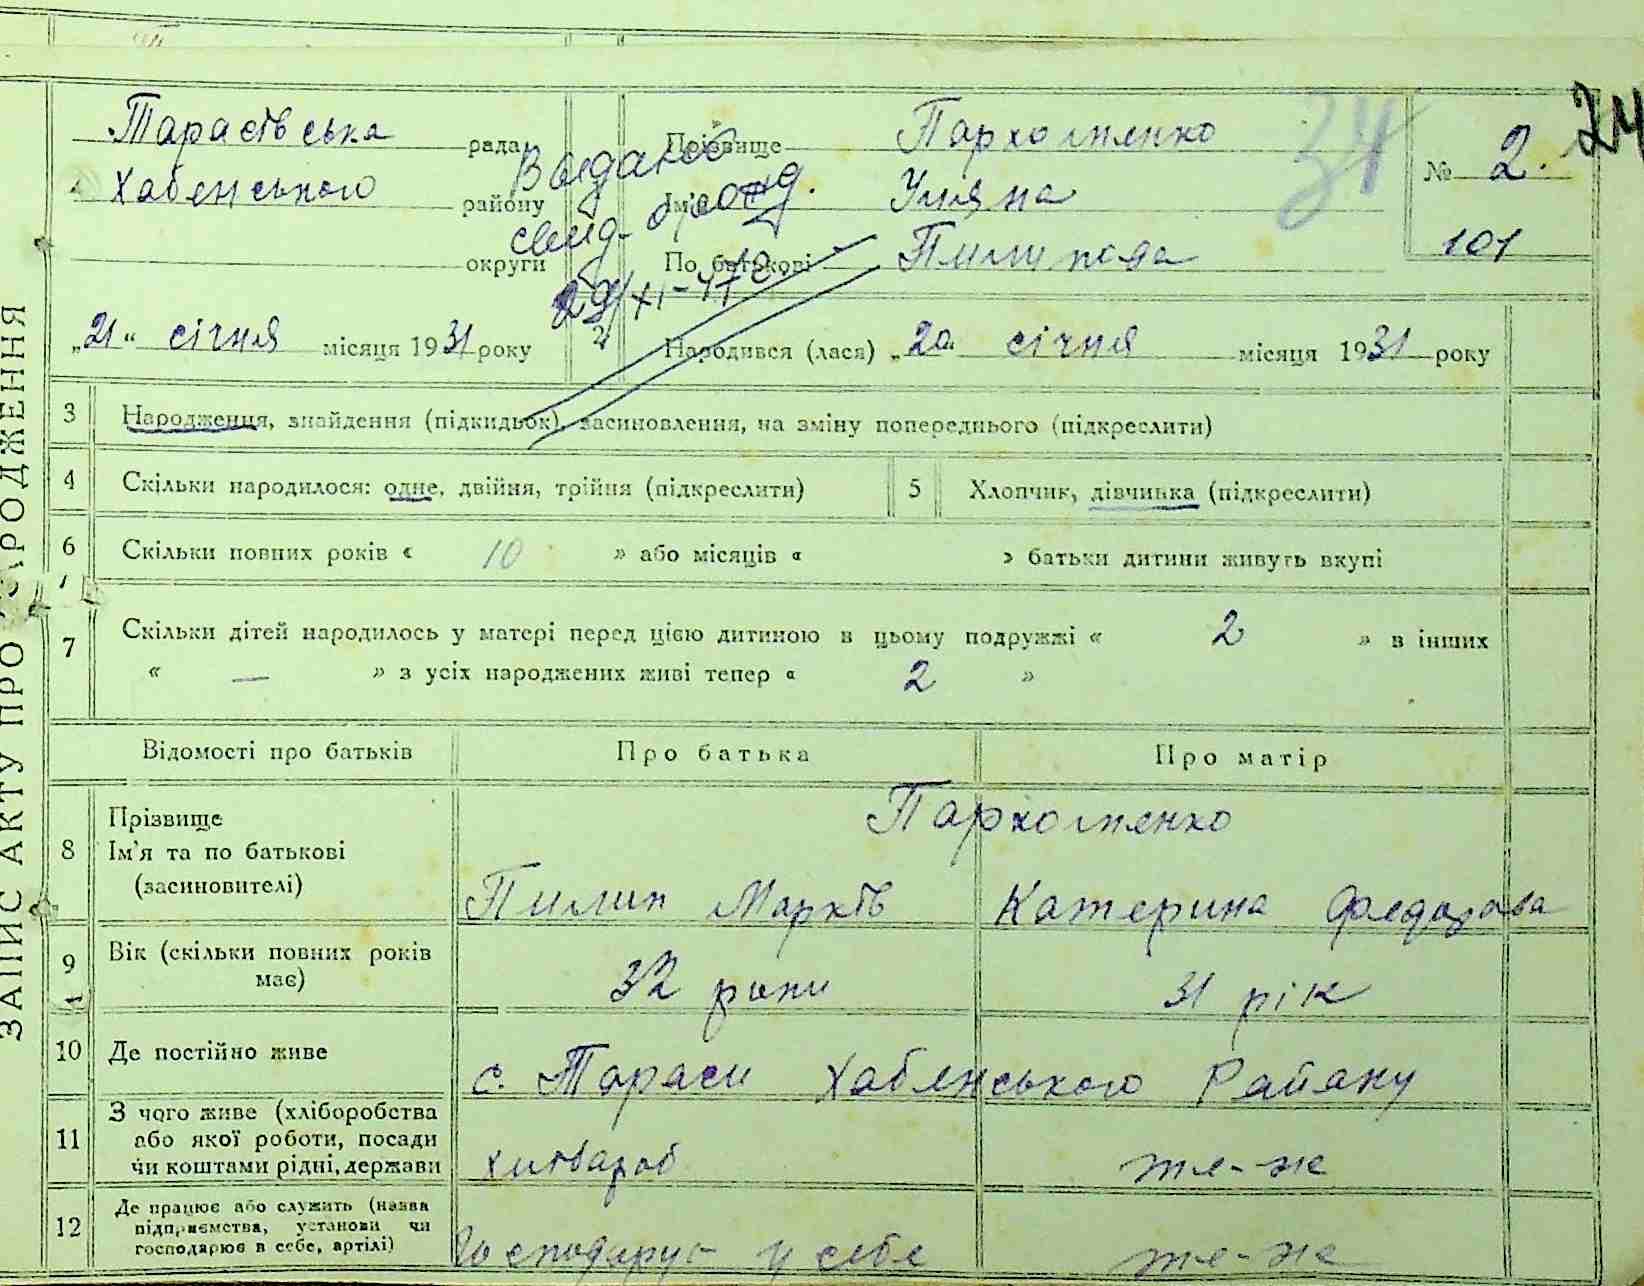 Тарасівська рада
Хабенського району
округи
„21“ січня місяця 1931 року
Выдано
свид. о рожд.
29/XI-47 г.
Прізвище Пархоменко
Ім'я Уляна
По батькові Пилипова
34
№ 2.
24
101
2
Народився (лася) „20“ січня місяця 1931 року
ЗАПИС АКТУ ПРО НАРОДЖЕННЯ
3 Народження, знайдення (підкидьок), засиновлення, на зміну попереднього (підкреслити)
4 Скільки народилося: одне, двійня, трійня (підкреслити) 5 Хлопчик, дівчинка (підкреслити)
6 Скільки повних років « 10 » або місяців « » батьки дитини живуть вкупі
7 Скільки дітей народилось у матері перед цією дитиною в цьому подружжі « 2 » в інших
« — » з усіх народжених живі тепер « 2 »
Відомості про батьків Про батька Про матір
8 Прізвище Пархоменко
Ім'я та по батькові
(засиновителі) Пилип Марків Катерина Федорова
9 Вік (скільки повних років
має) 32 роки 31 рік
10 Де постійно живе с. Тараси Хабенського Району
11 З чого живе (хліборобства
або якої роботи, посади
чи коштами рідні, держави хлібароб те-ж
12 Де працює або служить (назва
підприємства, установи чи
господарює в себе, артілі) Господарує у себе те-ж